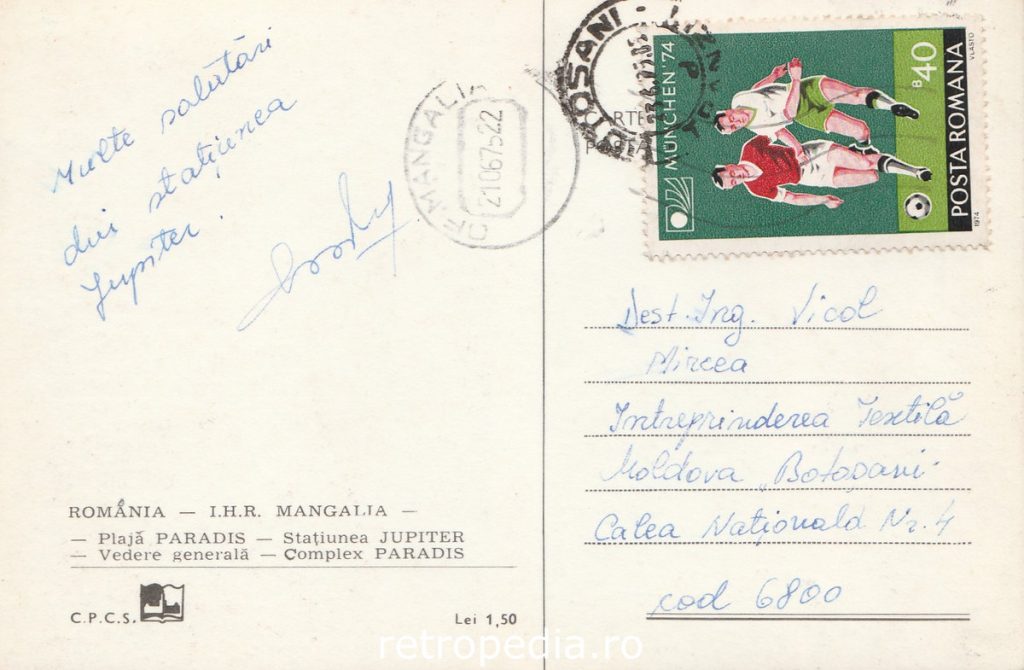 Multe salutări
din stațiunea
Jupiter.
OF. MANGALIA
21.06.75.22
BOTOSANI
MÜNCHEN '74
B 40
POSTA ROMANA
VLASTO
1974
Dest. Ing. Vicol
Mircea
Intreprinderea Textilă
Moldova „Botoșani"
Calea Națională Nr. 4
cod 6800
ROMÂNIA — I.H.R. MANGALIA —
— Plajă PARADIS — Stațiunea JUPITER
— Vedere generală — Complex PARADIS
C.P.C.S.
Lei 1,50
retropedia.ro